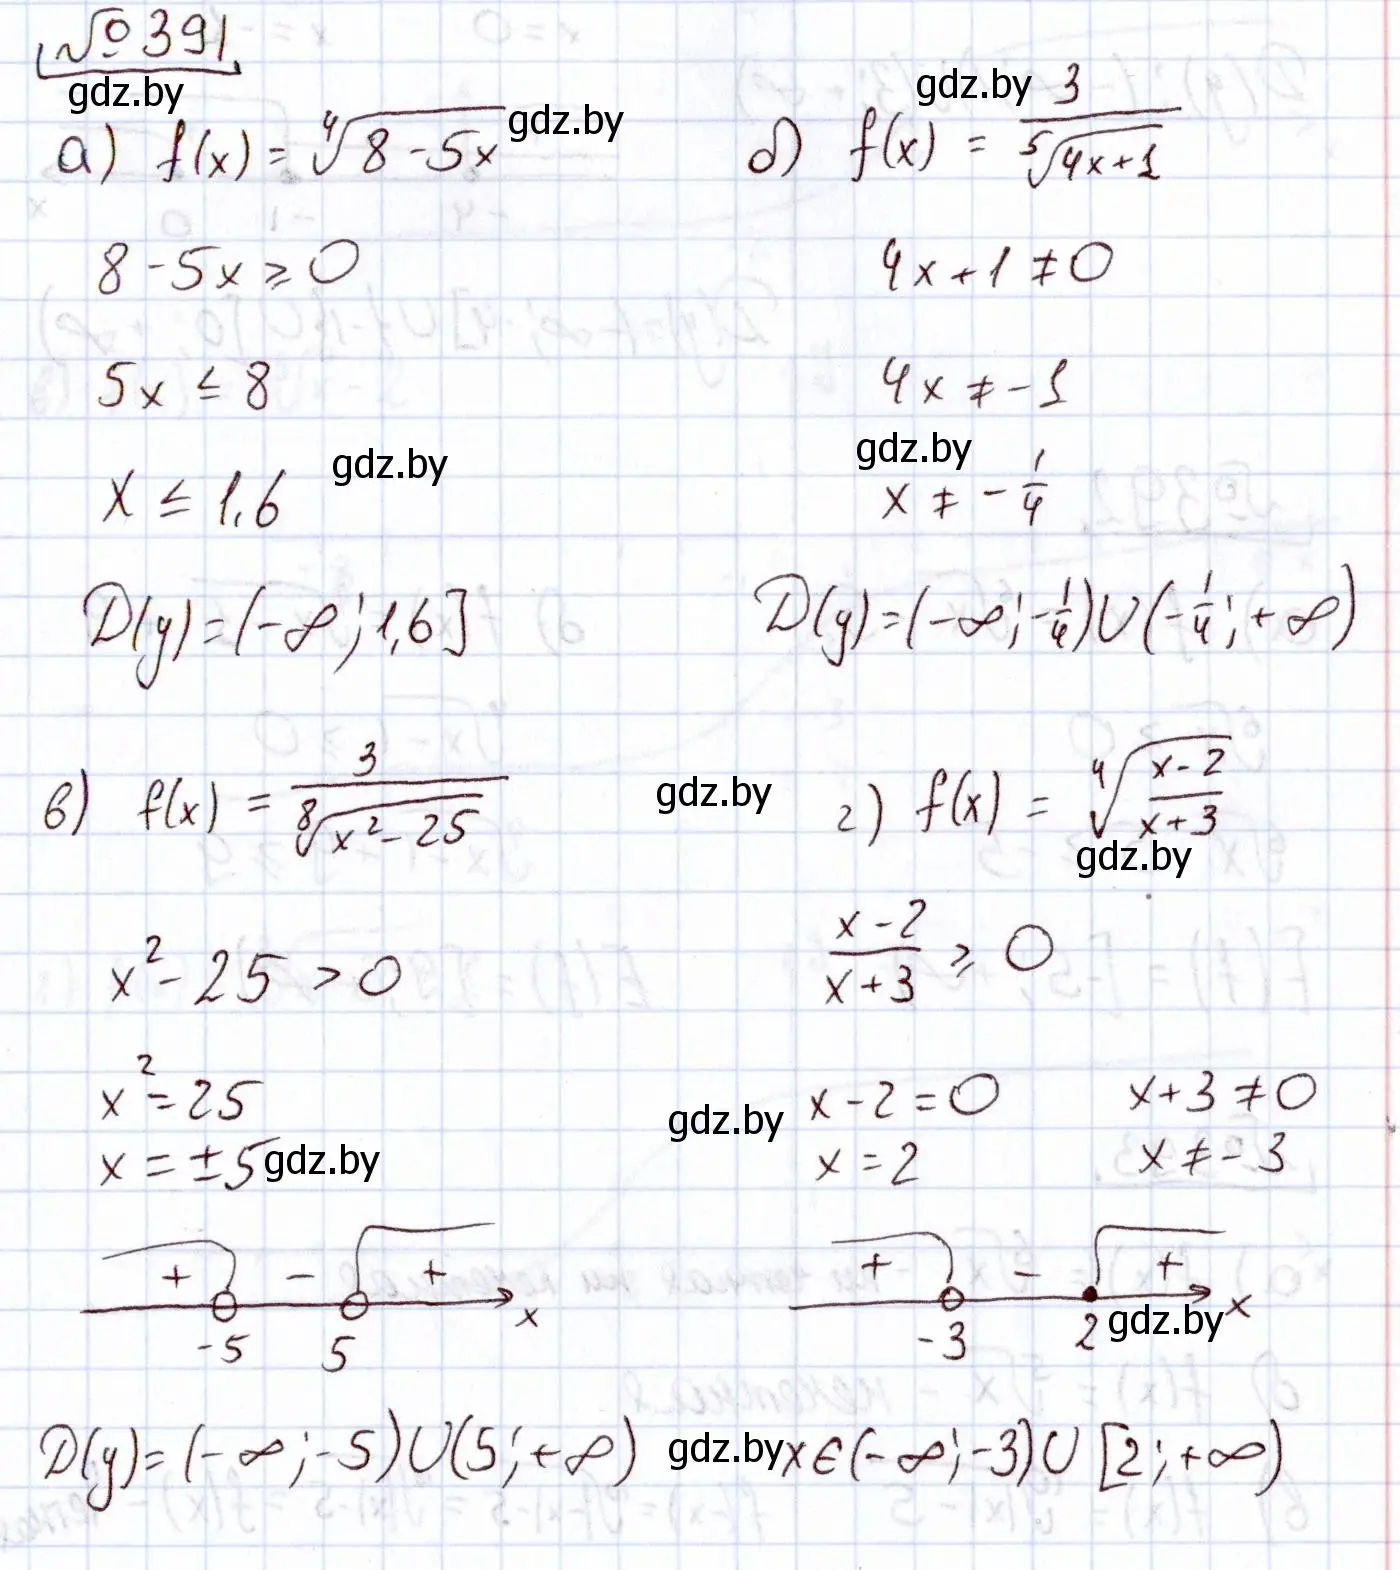 №391
gdz.by
а) f(x) = ⁴√(8 - 5x) gdz.by
8 - 5x ≥ 0
5x ≤ 8
x ≤ 1,6 gdz.by
D(y) = (-∞; 1,6]
gdz.by
б) f(x) = 3/⁵√(4x+1)
4x + 1 ≠ 0
4x ≠ -1
gdz.by
x ≠ -1/4
D(y) = (-∞; -1/4) ∪ (-1/4; +∞)
в) f(x) = 3/⁸√(x² - 25)
x² - 25 > 0
x² = 25
x = ±5 gdz.by
+ - +
-5 5 x
D(y) = (-∞; -5) ∪ (5; +∞)
gdz.by
г) f(x) = ⁴√((x-2)/(x+3))
gdz.by
(x-2)/(x+3) ≥ 0
gdz.by
x - 2 = 0 x + 3 ≠ 0
x = 2 x ≠ -3
+ - +
-3 2 gdz.by x
gdz.by x ∈ (-∞; -3) ∪ [2; +∞)